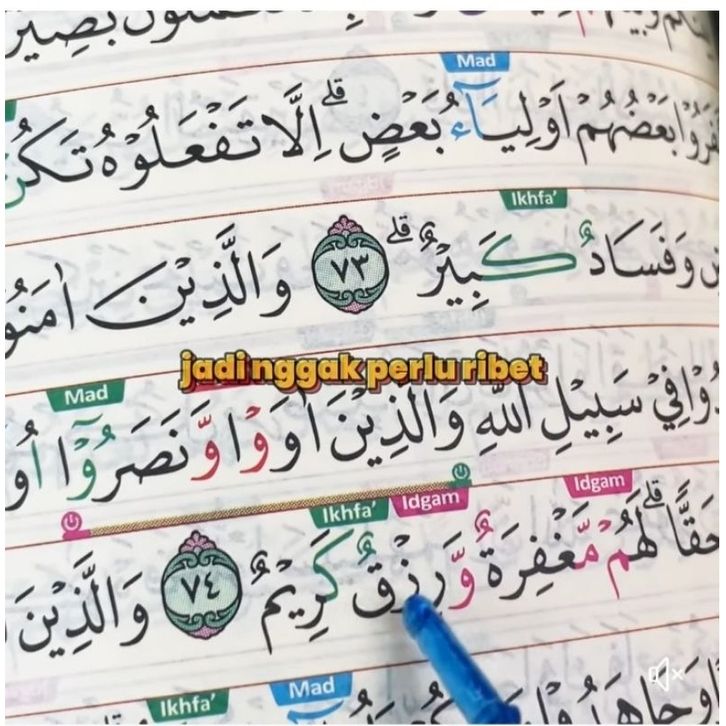 بَصِيْر
Mad
فَرُوْا بَعْضُهُمْ اَوْلِيَاۤءُ بَعْضٍۗ اِلَّا تَفْعَلُوْهُ تَكُنْ
Ikhfa'
وَفَسَادٌ كَبِيْرٌۗ ٧٣ وَالَّذِيْنَ اٰمَنُوْ
jadi nggak perlu ribet
Mad
دُوْا فِيْ سَبِيْلِ اللّٰهِ وَالَّذِيْنَ اٰوَوْا وَّنَصَرُوْٓا اُو
Idgam Idgam Ikhfa'
حَقًّاۗ لَهُمْ مَّغْفِرَةٌ وَّرِزْقٌ كَرِيْمٌ ٧٤ وَالَّذِيْنَ
Mad Ikhfa'